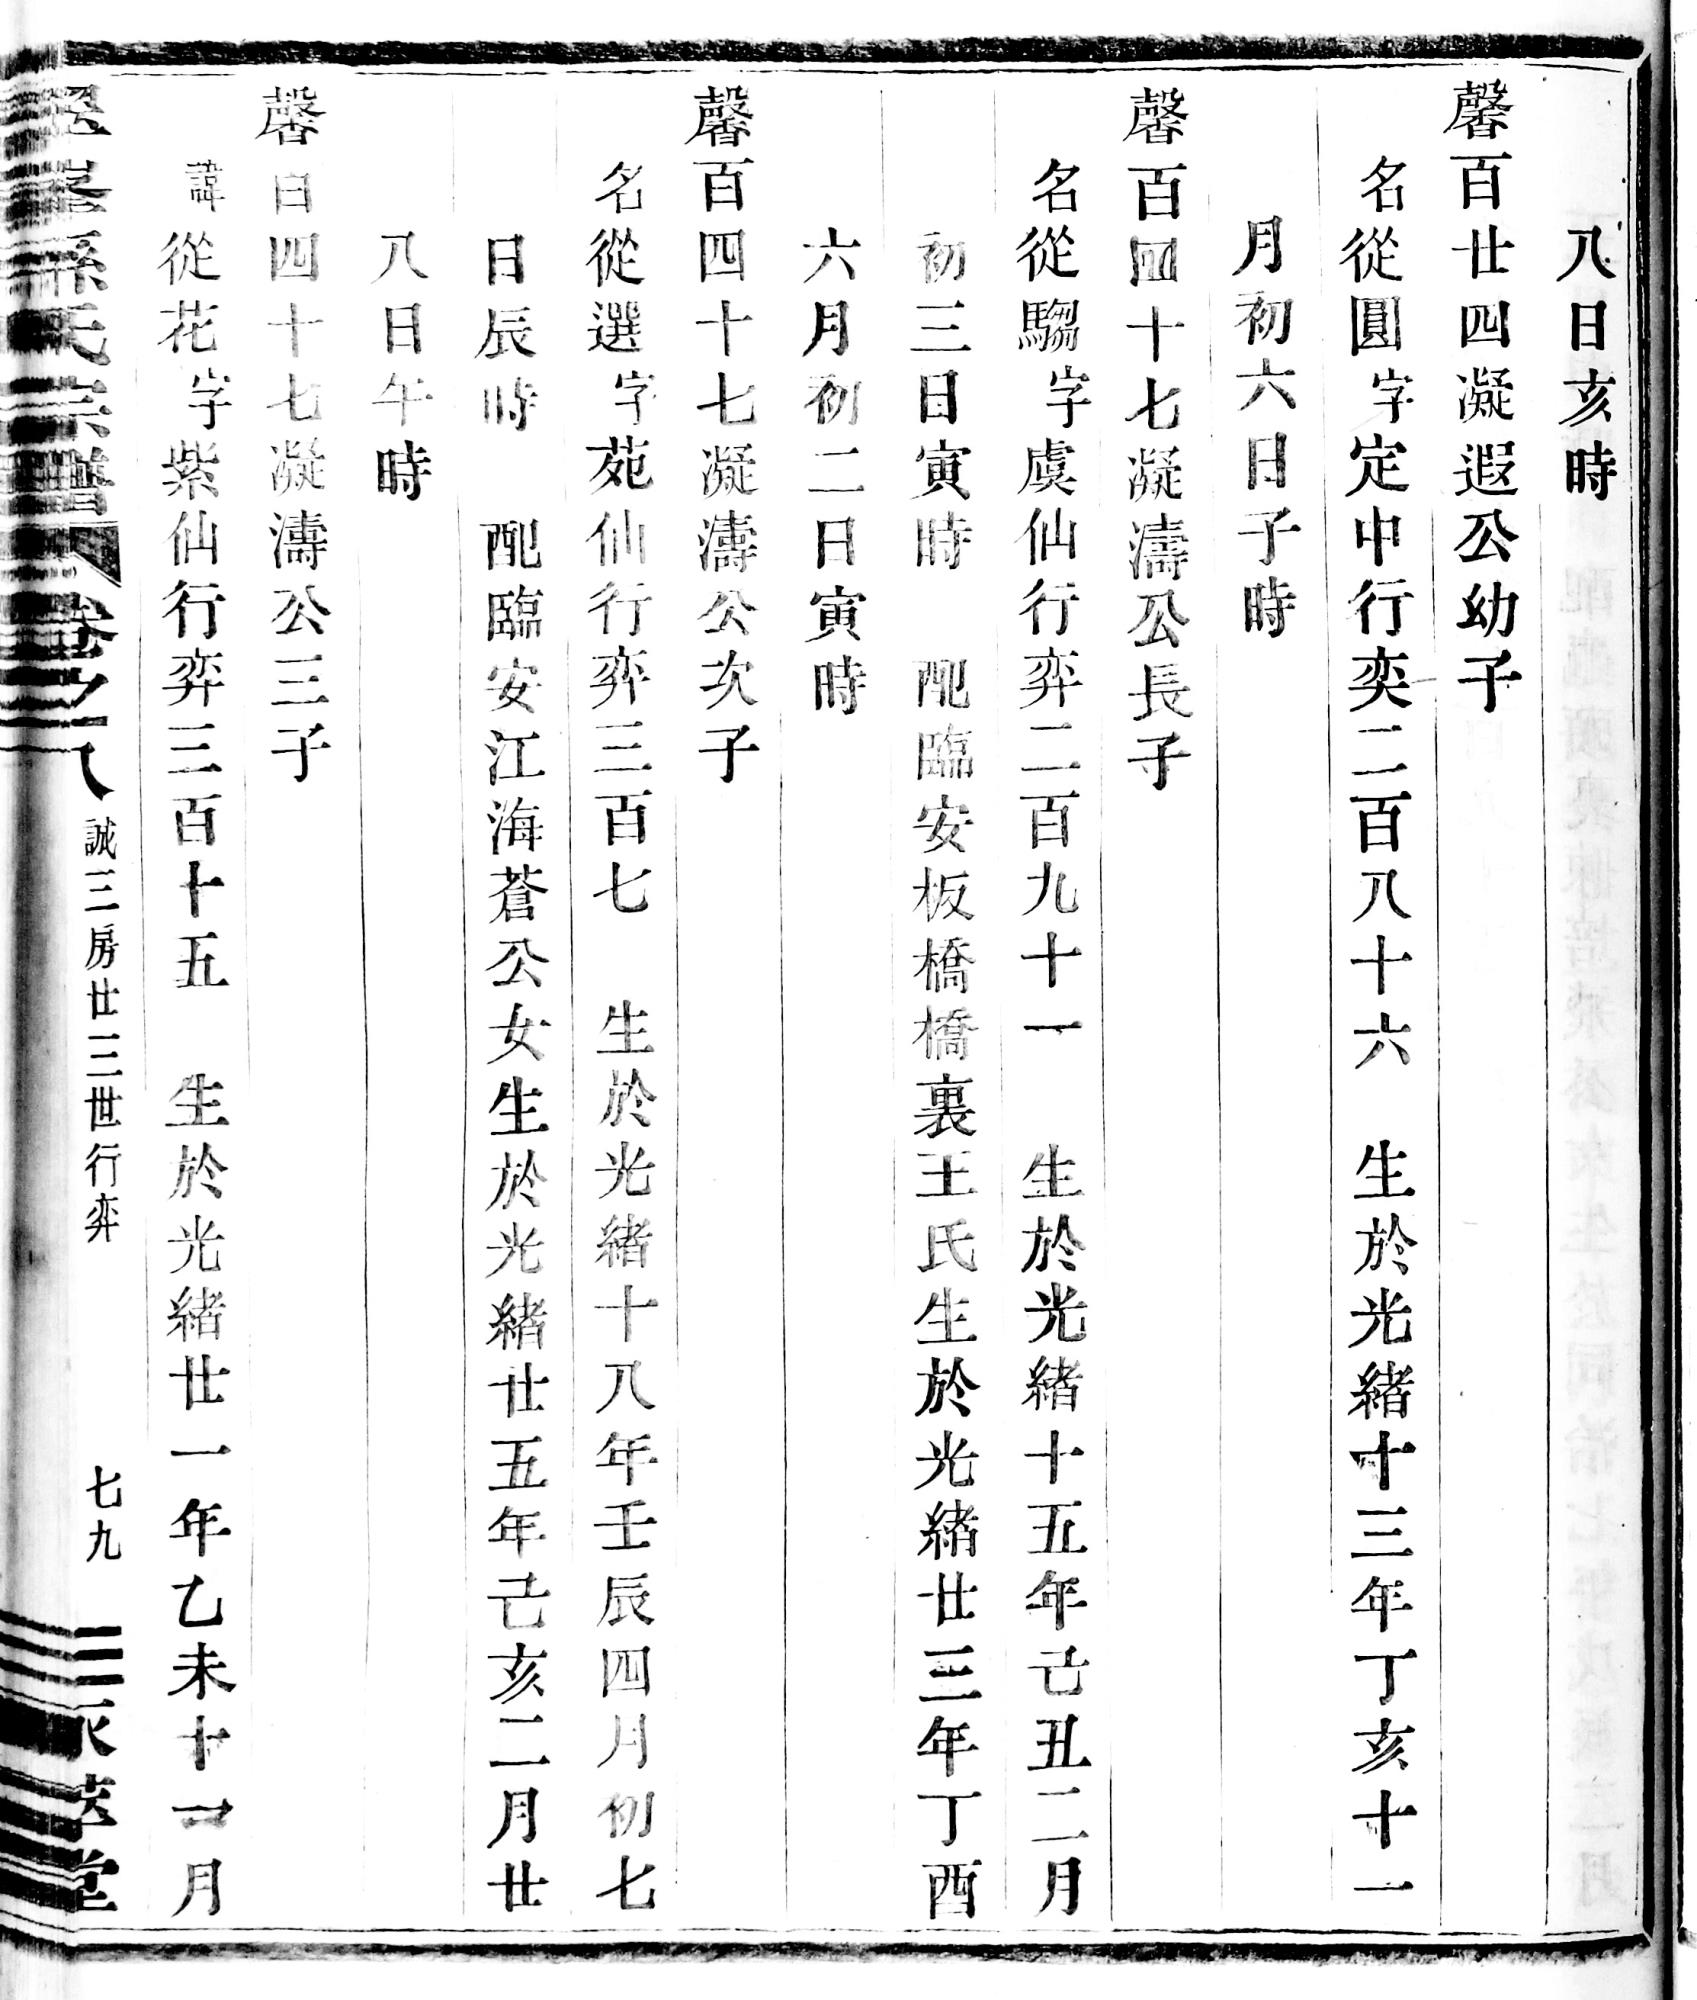 八日亥時
馨百廿四凝遐公幼子
名從圓字定中行奕二百八十六　生於光緒十三年丁亥十一
月初六日子時
馨百四十七凝濤公長子
名從騶字虞仙行弈二百九十一　生於光緒十五年己丑二月
初三日寅時　配臨安板橋橋裏王氏生於光緒廿三年丁酉
六月初二日寅時
馨百四十七凝濤公次子
名從選字苑仙行弈三百七　生於光緒十八年壬辰四月初七
日辰時　配臨安江海蒼公女生於光緒廿五年己亥二月廿
八日午時
馨百四十七凝濤公三子
諱從花字紫仙行弈三百十五　生於光緒廿一年乙未十一月
孫氏宗譜　卷之　八　誠三房廿三世行弈　七九　堂